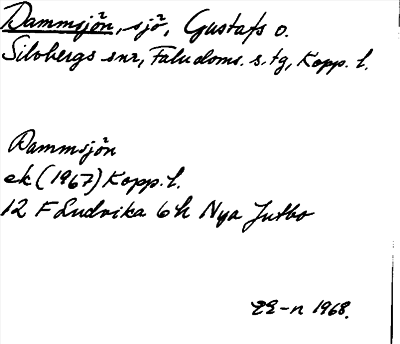 Dammsjön, sjö, Gustafs o.
Silvbergs snr, Faludoms. s. tg, Kopp. l.
Dammsjön
ek (1967) Kopp. l.
12 F Ludvika 6h Nya Jutbo
1968.